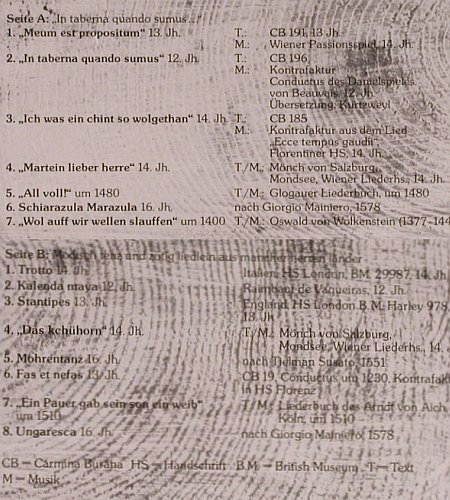 Seite A: „In taberna quando sumus...“
1. „Meum est propositum“ 13. Jh. T.: CB 191, 13 Jh.
M.: Wiener Passionsspiel, 14. Jh.
2. „In taberna quando sumus“ 12. Jh. T.: CB 196,
M.: Kontrafaktur
Conductus des Danielspieles
von Beauvais, 12. Jh.
Übersetzung, Kurtzweyl
3. „Ich was ein chint so wolgethan“ 14. Jh. T.: CB 185
M.: Kontrafaktur aus dem Lied
„Ecce tempus gaudii“,
Florentiner HS, 14. Jh.
4. „Martein lieber herre“ 14. Jh. T./M.: Mönch von Salzburg,
Mondsee, Wiener Liederhs., 14. Jh.
5. „All voll!“ um 1480 T./M.: Glogauer Liederbuch, um 1480
6. Schiarazula Marazula 16. Jh. nach Giorgio Mainiero, 1578
7. „Wol auff wir wellen slauffen“ um 1400 T./M.: Oswald von Wolkenstein (1377-144
Seite B: Modisch tenz und zotig liedlein aus mancher herren länder
1. Trotto 14. Jh. Italien, HS London, BM. 29987, 14. Jh.
2. Kalenda maya 12. Jh. Raimbaut de Vaqueiras, 12. Jh.
3. Stantipes 13. Jh. England, HS London B.M. Harley 978,
13. Jh.
4. „Das kchühorn“ 14. Jh. T./M.: Mönch von Salzburg,
Mondsee, Wiener Liederhs., 14.
5. Mohrentanz 16. Jh. nach Tielman Susato, 1551
6. Fas et nefas 13. Jh. CB 19, Conductus um 1230, Kontrafak
in HS Florenz
7. „Ein Pauer gab sein son ein weib“ T./M.: Liederbuch des Arndt von Aich,
um 1510 Köln, um 1510
8. Ungaresca 16. Jh. nach Giorgio Mainiero, 1578
CB = Carmina Burana HS = Handschrift B.M. = British Museum T = Text
M = Musik